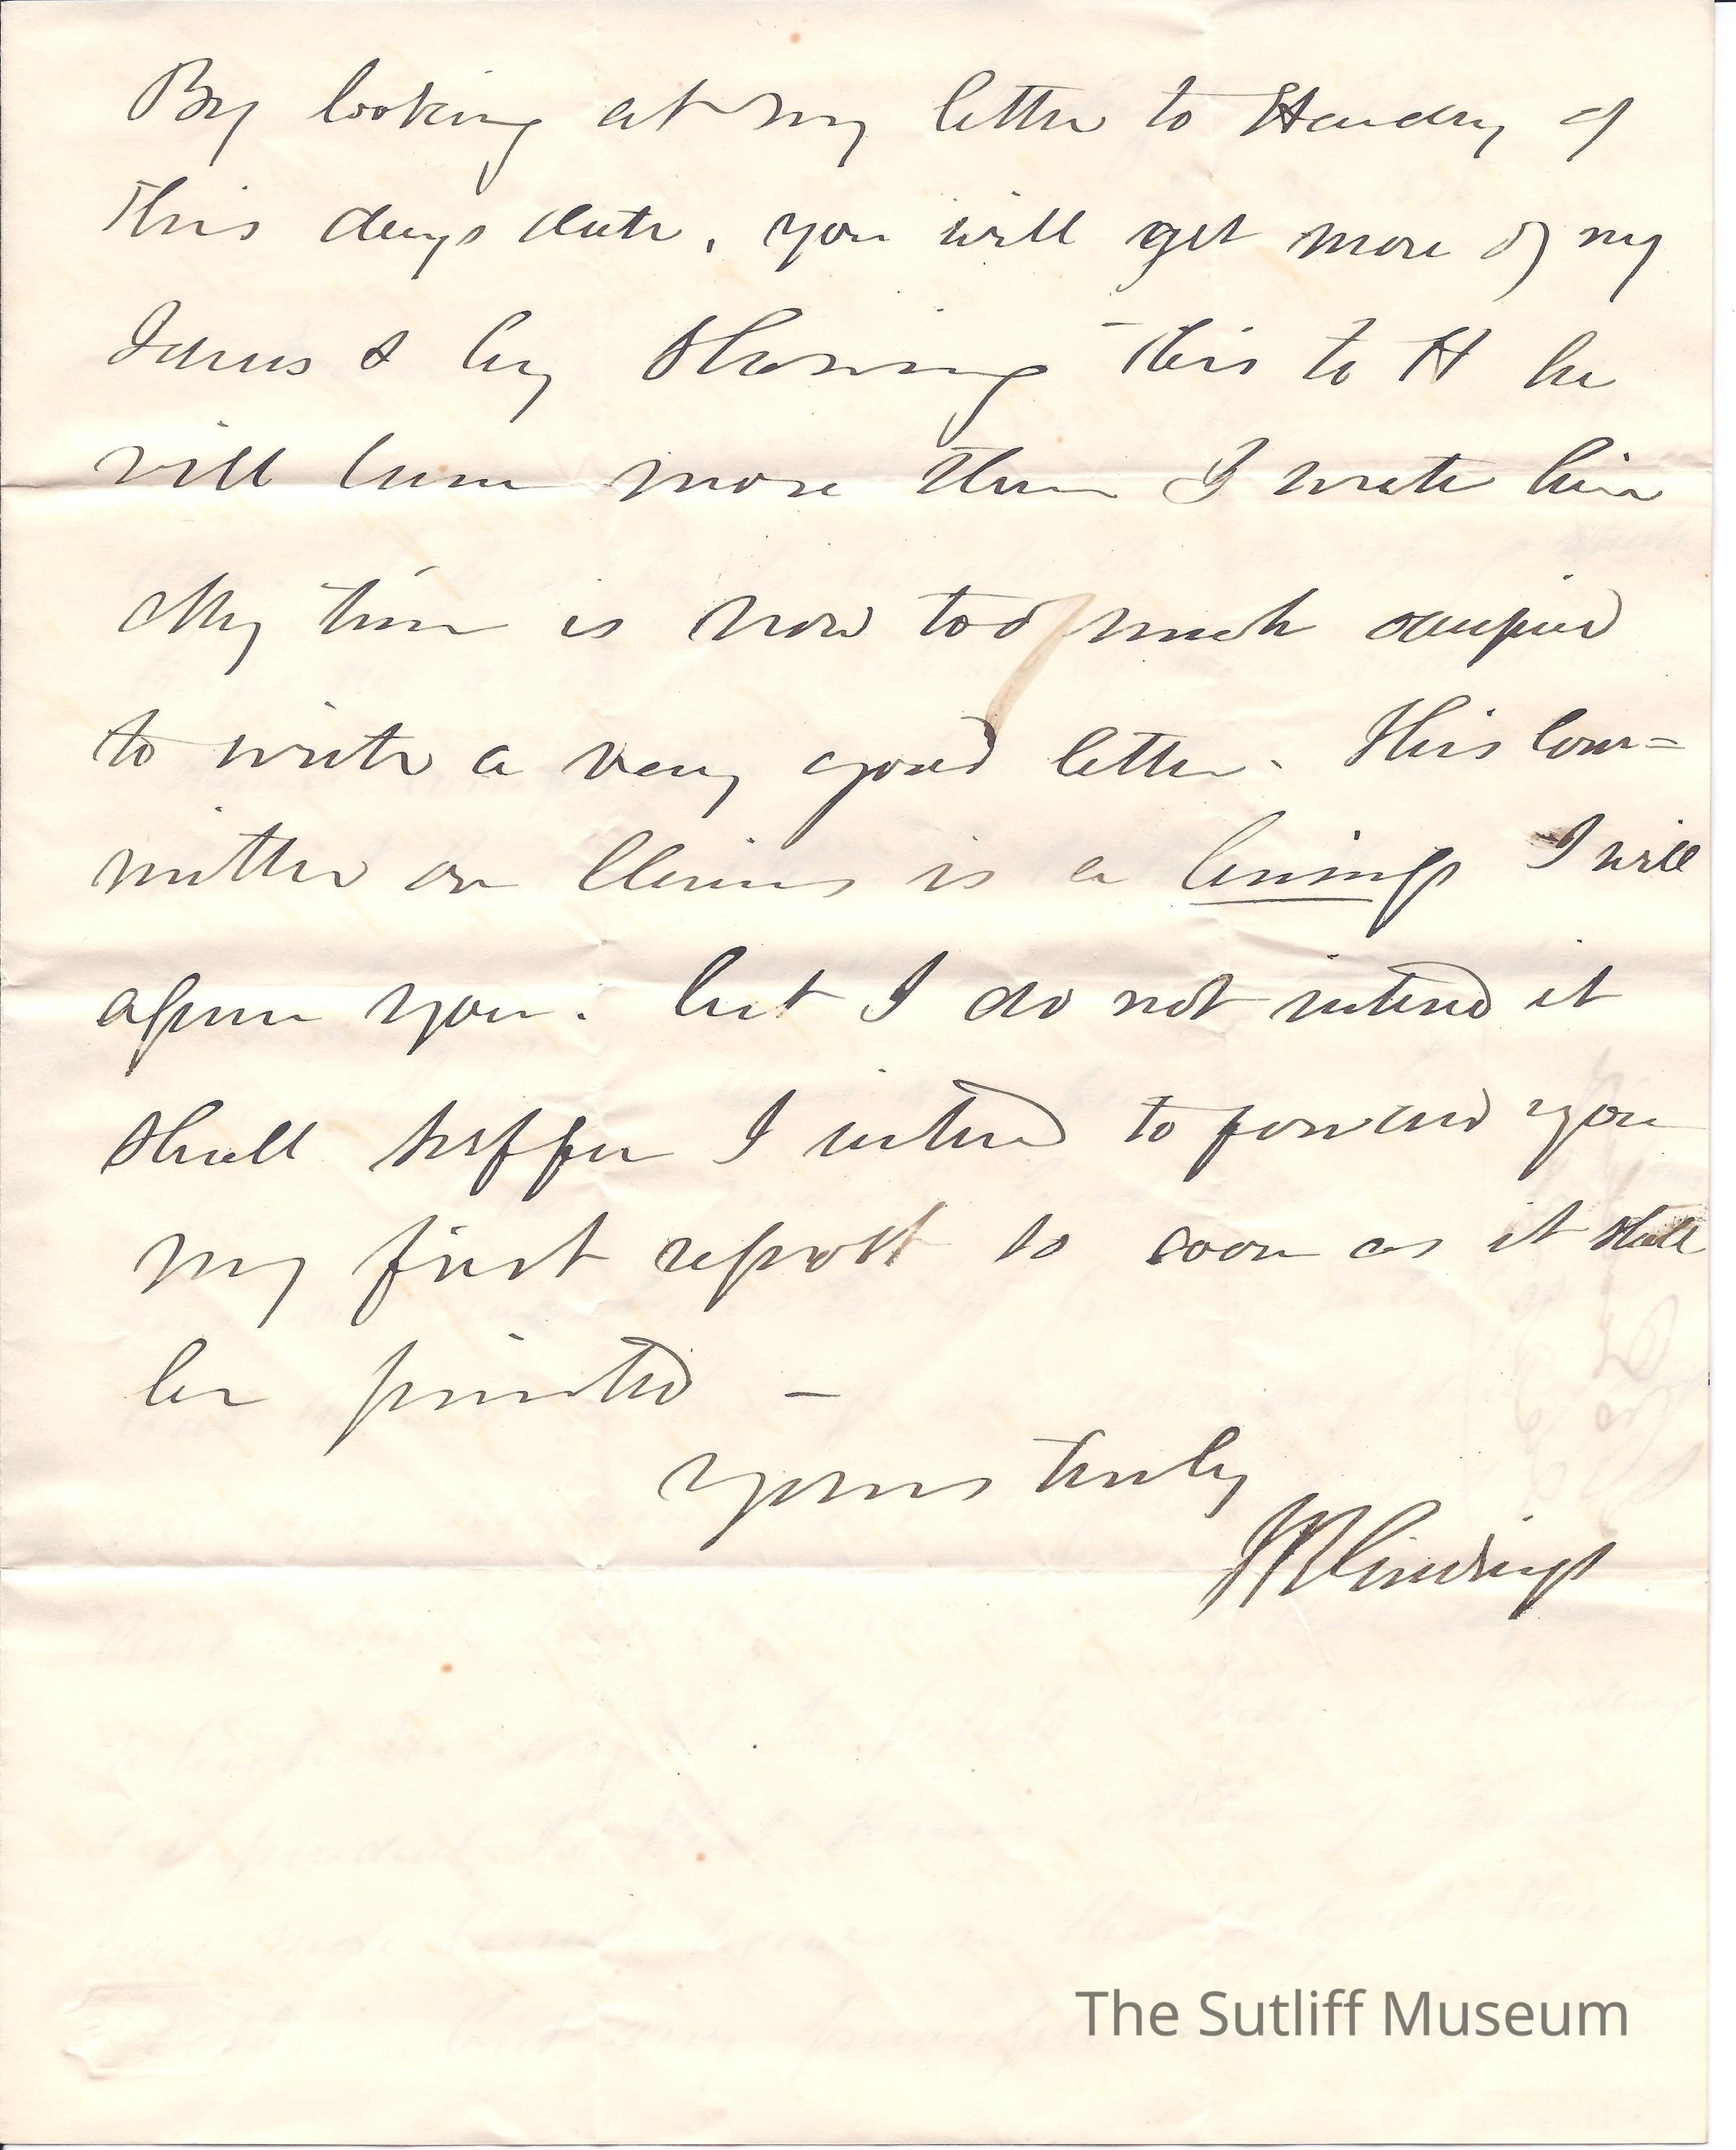 By looking at my letter to Hendry of
this days date, you will get more of my
Ideas & by showing this to H he
will learn more than I wrote him
My time is now too much occupied
to write a very good letter. This Com=
mittee on Claims is a I will
assure you. but I do not intend it
shall suffer I intend to forward you
my first report so soon as it shall
be printed —
yours truly
J R Giddings
The Sutliff Museum